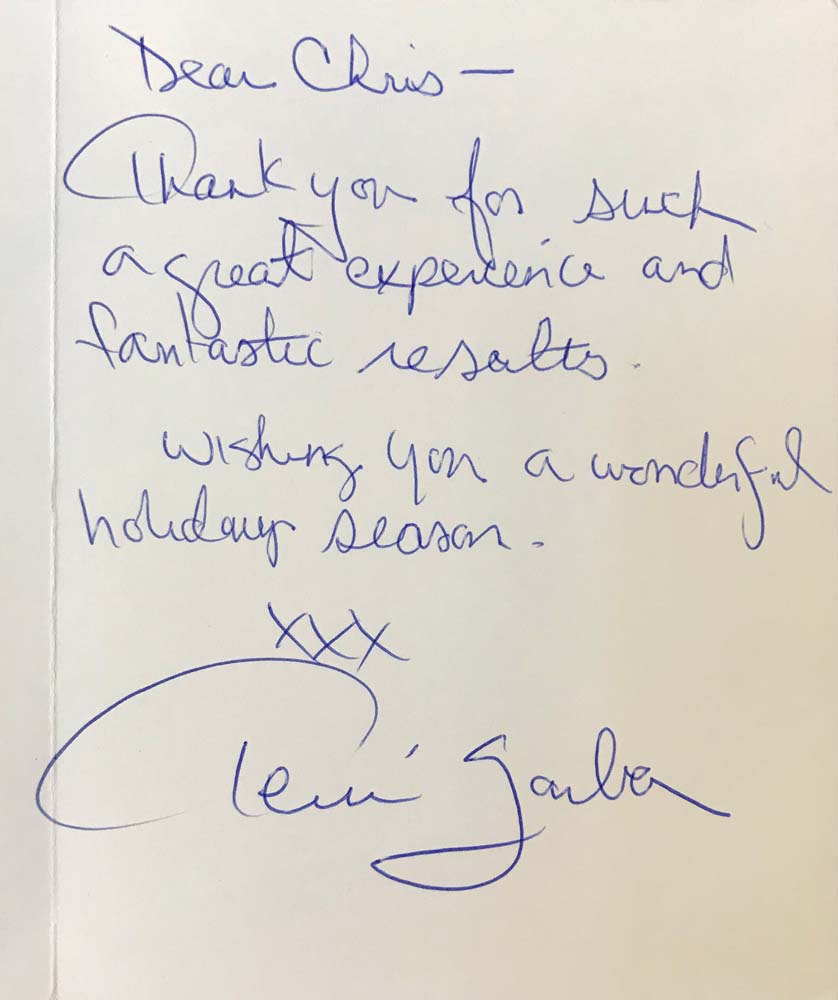 Dear Chris —
Thank you for such
a great experience and
fantastic results.
Wishing you a wonderful
holiday season.
XXX